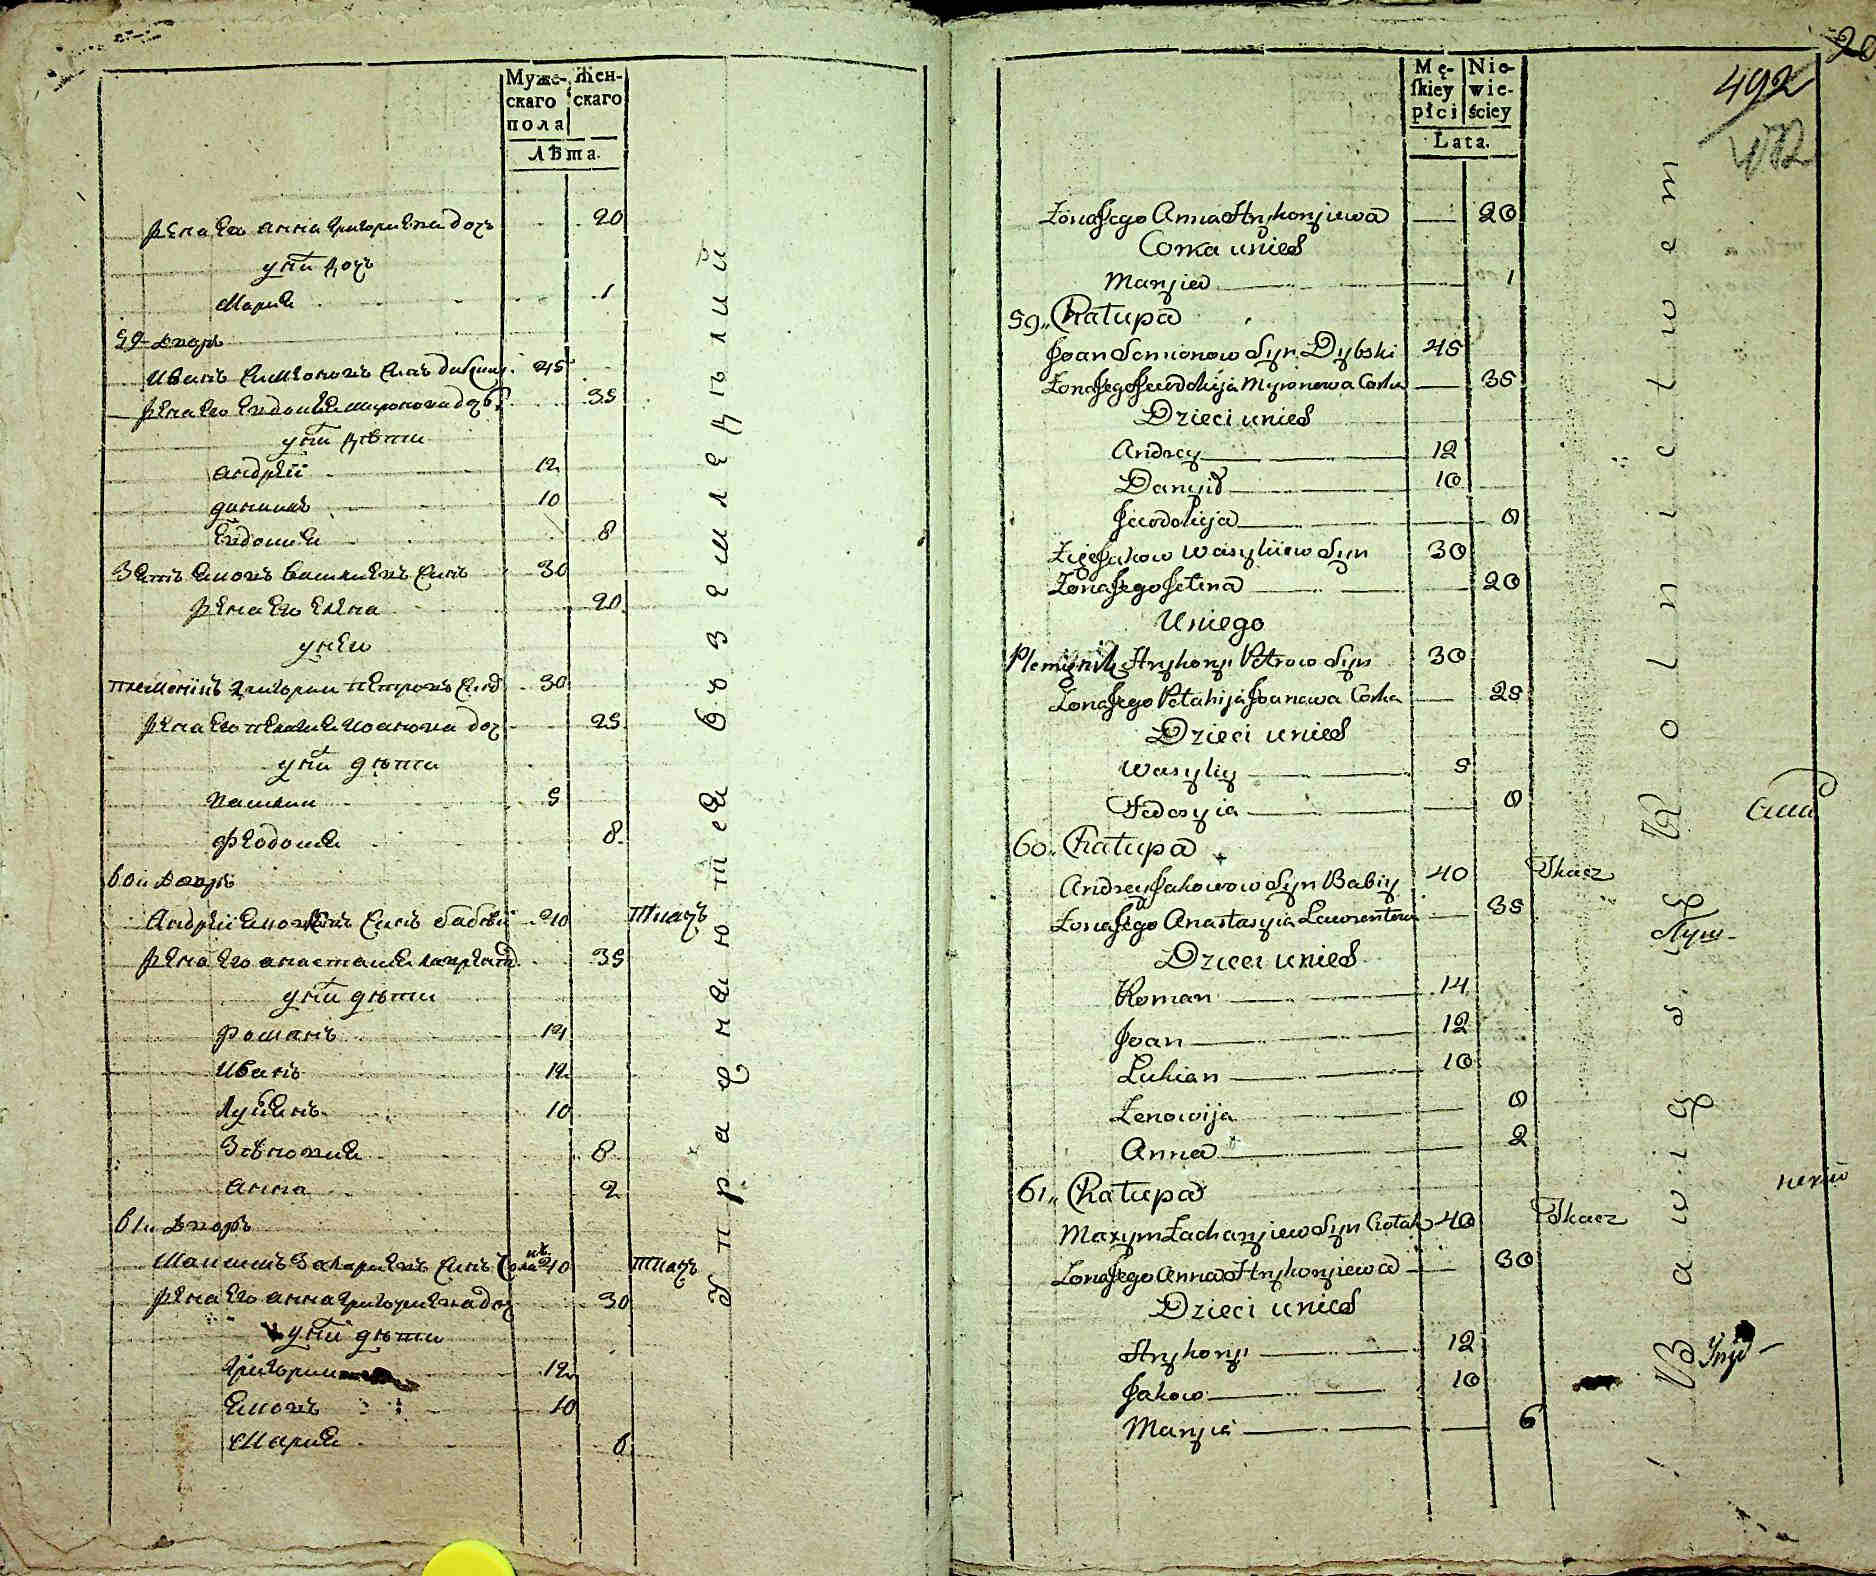 Муже-
скаго
пола
Жен-
скаго
Лѣта.
жена его анна григориева доч 20
у них доч
Мария 1
59 двор
Иванъ Симеоновъ синъ 45
жена его Евдокия миронова доч 35
у них дѣти
андрей 12
данилъ 10
Евдокия 8
Зять Яковъ Василиевъ синъ 30
жена его Елена 20
у него
племенникъ григорий петровъ син 30
жена его пелагия Иоанова доч 25
у них дѣти
василий 5
Феодосия 8
60 двор
Андрей Яковлевъ синъ бабий 40 ткачъ
жена его анастасия лаврент 35
у них дѣти
романъ 14
Иванъ 12
Лукиянъ 10
Зѣновия 8
анна 2
61 двор
Максимъ Захариевъ синъ 40 ткачъ
жена его анна григориева доч 30
у них дѣти
григорий 12
Яковъ 10
Мария 6
Упражняются въ земледѣлии
Mę-
ſkiey
płci
Nie-
wie-
ściey
Lata.
492
Żona Jego Anna Hryhorjiewa 20
Corka unich
Maryia 1
59 Chałupa
Joan Semionow Syn Dybski 45
Żona Jego Jewdokija Myronowa Corka 35
Dzieci unich
Andrey 12
Danyił 10
Jewdokija 8
Zięć Jakow Wasyliiew Syn 30
Żona Jego Jelena 20
Uniego
Plemięnik Hryhoryi Petrow Syn 30
Żona Jego Pelahija Joanowa Corka 25
Dzieci unich
Wasyliy 5
Fedosyia 8
60 Chałupa
Andrey Jakowow Syn Babiy 40 Tkacz
Żona Jego Anastasyia Lawrentowa 35
Dzieci unich
Roman 14
Joan 12
Lukian 10
Zenowija 8
Anna 2
61 Chałupa
Maxym Zacharyiew Syn 40 Tkacz
Żona Jego Anna Hryhoryiewa 30
Dzieci unich
Hryhoryi 12
Jakow 10
Maryia 6
Bawią się Rolnictwem